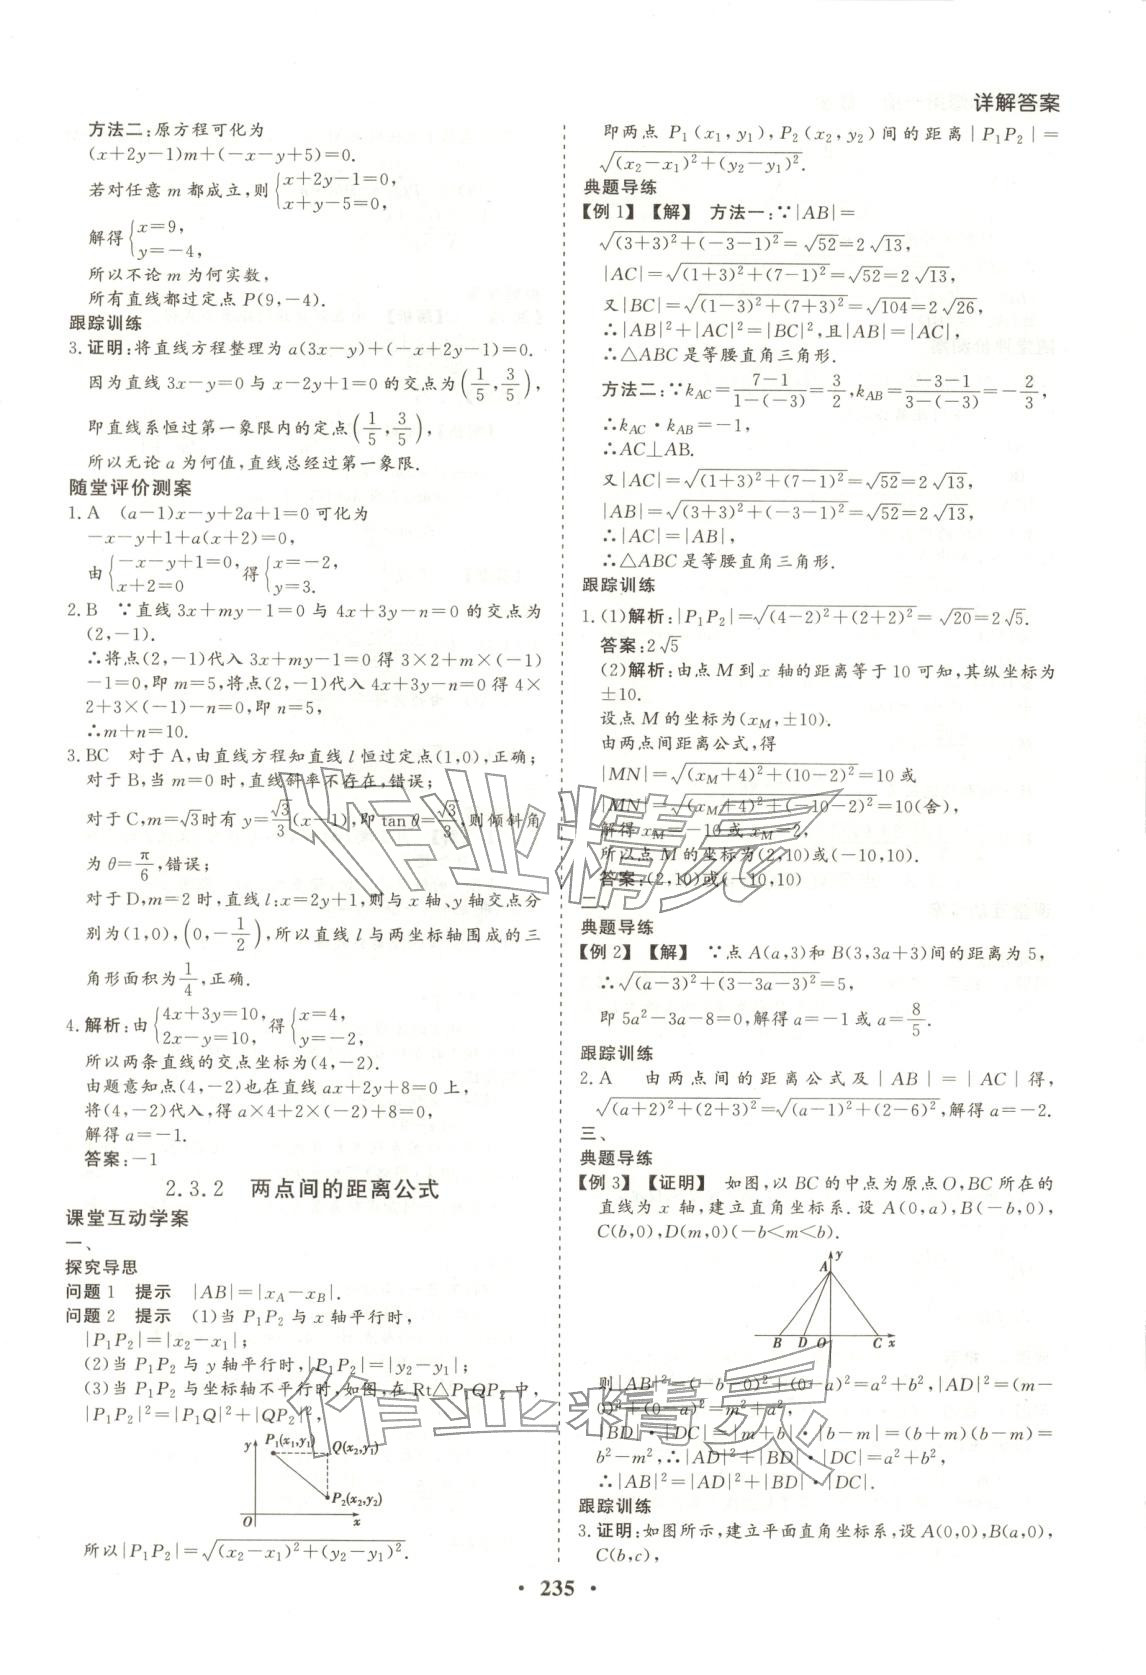 详解答案
方法二:原方程可化为
(x+2y-1)m+(-x-y+5)=0.
若对任意 m 都成立,则{x+2y-1=0, x+y-5=0,
解得{x=9, y=-4,
所以不论 m 为何实数,
所有直线都过定点 P(9,-4).
跟踪训练
3.证明:将直线方程整理为 a(3x-y)+(-x+2y-1)=0.
因为直线 3x-y=0 与 x-2y+1=0 的交点为(1/5,3/5),
即直线系恒过第一象限内的定点(1/5,3/5),
所以无论 a 为何值,直线总经过第一象限.
随堂评价测案
1.A (a-1)x-y+2a+1=0 可化为
-x-y+1+a(x+2)=0,
由{-x-y+1=0, x+2=0 得{x=-2, y=3.
2.B ∵直线 3x+my-1=0 与 4x+3y-n=0 的交点为
(2,-1).
∴将点(2,-1)代入 3x+my-1=0 得 3×2+m×(-1)
-1=0,即 m=5,将点(2,-1)代入 4x+3y-n=0 得 4×
2+3×(-1)-n=0,即 n=5,
∴m+n=10.
3.BC 对于 A,由直线方程知直线 l 恒过定点(1,0),正确;
对于 B,当 m=0 时,直线斜率不存在,错误;
对于 C,m=√3时有 y=√3/3(x-1),即 tan θ=√3/3,则倾斜角
为 θ=π/6,错误;
对于 D,m=2 时,直线 l:x=2y+1,则与 x 轴、y 轴交点分
别为(1,0),(0,-1/2),所以直线 l 与两坐标轴围成的三
角形面积为1/4,正确.
4.解析:由{4x+3y=10, 2x-y=10, 得{x=4, y=-2,
所以两条直线的交点坐标为(4,-2).
由题意知点(4,-2)也在直线 ax+2y+8=0 上,
将(4,-2)代入,得 a×4+2×(-2)+8=0,
解得 a=-1.
答案:-1
2.3.2 两点间的距离公式
课堂互动学案
一、
探究导思
问题 1 提示 |AB|=|xA-xB|.
问题 2 提示 (1)当 P₁P₂ 与 x 轴平行时,
|P₁P₂|=|x₂-x₁|;
(2)当 P₁P₂ 与 y 轴平行时,|P₁P₂|=|y₂-y₁|;
(3)当 P₁P₂ 与坐标轴不平行时,如图,在 Rt△P₁QP₂ 中,
|P₁P₂|²=|P₁Q|²+|QP₂|²,
y P₁(x₁,y₁) Q(x₂,y₁)
P₂(x₂,y₂)
O x
所以|P₁P₂|=√((x₂-x₁)²+(y₂-y₁)²).
即两点 P₁(x₁,y₁),P₂(x₂,y₂)间的距离|P₁P₂|=
√((x₂-x₁)²+(y₂-y₁)²).
典题导练
【例 1】【解】 方法一:∵|AB|=
√((3+3)²+(-3-1)²)=√52=2√13,
|AC|=√((1+3)²+(7-1)²)=√52=2√13,
又|BC|=√((1-3)²+(7+3)²)=√104=2√26,
∴|AB|²+|AC|²=|BC|²,且|AB|=|AC|,
∴△ABC 是等腰直角三角形.
方法二:∵kAC=(7-1)/(1-(-3))=3/2,kAB=(-3-1)/(3-(-3))=-2/3,
∴kAC·kAB=-1,
∴AC⊥AB.
又|AC|=√((1+3)²+(7-1)²)=√52=2√13,
|AB|=√((3+3)²+(-3-1)²)=√52=2√13,
∴|AC|=|AB|,
∴△ABC 是等腰直角三角形.
跟踪训练
1.(1)解析:|P₁P₂|=√((4-2)²+(2+2)²)=√20=2√5.
答案:2√5
(2)解析:由点 M 到 x 轴的距离等于 10 可知,其纵坐标为
±10.
设点 M 的坐标为(xM,±10).
由两点间距离公式,得
|MN|=√((xM+4)²+(10-2)²)=10 或
|MN|=√((xM+4)²+(-10-2)²)=10(舍),
解得 xM=-10 或 xM=2,
所以点 M 的坐标为(2,10)或(-10,10).
答案:(2,10)或(-10,10)
二、
典题导练
【例 2】【解】 ∵点 A(a,3)和 B(3,3a+3)间的距离为 5,
∴√((a-3)²+(3-3a-3)²)=5,
即 5a²-3a-8=0,解得 a=-1 或 a=8/5.
跟踪训练
2.A 由两点间的距离公式及|AB|=|AC|得,
√((a+2)²+(2+3)²)=√((a-1)²+(2-6)²),解得 a=-2.
三、
典题导练
【例 3】【证明】 如图,以 BC 的中点为原点 O,BC 所在的
直线为 x 轴,建立直角坐标系.设 A(0,a),B(-b,0),
C(b,0),D(m,0)(-b<m<b).
y
A
B D O C x
则|AB|²=(-b-0)²+(0-a)²=a²+b²,|AD|²=(m-
0)²+(0-a)²=m²+a²,
|BD|·|DC|=|m+b|·|b-m|=(b+m)(b-m)=
b²-m²,∴|AD|²+|BD|·|DC|=a²+b²,
∴|AB|²=|AD|²+|BD|·|DC|.
跟踪训练
3.证明:如图所示,建立平面直角坐标系,设 A(0,0),B(a,0),
C(b,c),
· 235 ·
作业精灵
作业精灵